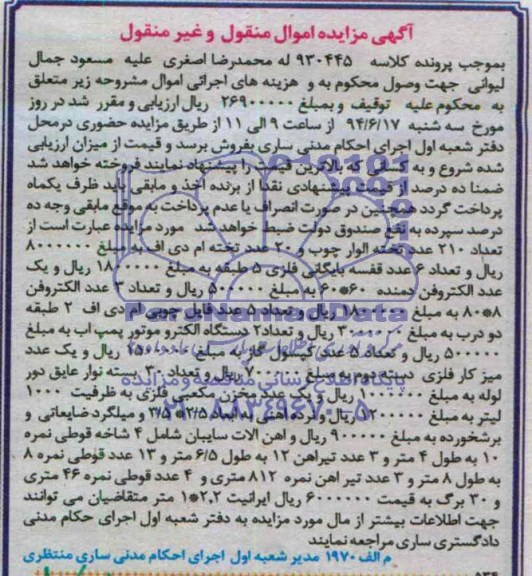 آگهی مزایده اموال منقول و غیر منقول
بموجب پرونده کلاسه ۹۳۰۴۴۵ له محمدرضا اصغری علیه مسعود جمال
لیوانی جهت وصول محکوم به و هزینه های اجرائی اموال مشروحه زیر متعلق
به محکوم علیه توقیف و بمبلغ ۲۶۹۰۰۰۰۰ ریال ارزیابی و مقرر شد در روز
مورخ سه شنبه ۹۴/۶/۱۷ از ساعت ۹ الی ۱۱ از طریق مزایده حضوری درمحل
دفتر شعبه اول اجرای احکام مدنی ساری بفروش برسد و قیمت از میزان ارزیابی
شده شروع و به کسانی که بالاترین قیمت را پیشنهاد نمایند فروخته خواهد شد
ضمنا ده درصد از قیمت پیشنهادی نقدا از برنده اخذ و مابقی باید ظرف یکماه
پرداخت گردد همچنین در صورت انصراف یا عدم پرداخت به موقع مابقی وجه ده
درصد سپرده به نفع صندوق دولت ضبط خواهد شد مورد مزایده عبارت است از
تعداد ۲۱۰ عدد تخته الوار چوب و ۲۰ عدد تخته ام دی اف به مبلغ ۸۰۰۰۰۰۰
ریال و تعداد ۶ عدد قفسه بایگانی فلزی ۵ طبقه به مبلغ ۱۸۰۰۰۰۰ ریال و یک
عدد الکتروفن دمنده ۶۰*۶۰ به مبلغ ۵۰۰۰۰۰ ریال و تعداد ۳ عدد الکتروفن
۸*۸۰ به مبلغ ریال و تعداد ۵ عدد فایل چوبی ام دی اف ۲ طبقه
دو درب به مبلغ ریال و تعداد۲ دستگاه الکترو موتور پمپ اب به مبلغ
۵۰۰۰۰۰ ریال و تعداد ۵ عدد کپسول گاز به مبلغ ریال و یک عدد
میز کار فلزی دسته دوم به مبلغ ریال و تعداد ۳۰ بسته نوار عایق دور
لوله به مبلغ ریال و یک عدد مخزن مکعبی فلزی به ظرفیت ۱۰۰۰
لیتر به مبلغ ریال و نرده آهنی به ابعاد ۲/۵* ۳/۵ و میلگرد ضایعاتی و
برشخورده به مبلغ ۹۰۰۰۰۰ ریال و اهن الات سایبان شامل ۴ شاخه قوطی نمره
۱۰ به طول ۴ متر و ۳ عدد تیراهن ۱۲ به طول ۶/۵ متر و ۱۳ عدد قوطی نمره ۸
به طول ۸ متر و ۳ عدد تیر اهن نمره ۸۱۲ متری و ۴ عدد قوطی نمره ۴۶ متری
و ۳۰ برگ به قیمت ۶۰۰۰۰۰۰ ریال ایرانیت ۲.۲*۱ متر متقاضیان می توانند
جهت اطلاعات بیشتر از مال مورد مزایده به دفتر شعبه اول اجرای حکام مدنی
دادگستری ساری مراجعه نمایند
م الف ۱۹۷۰ مدیر شعبه اول اجرای احکام مدنی ساری منتظری